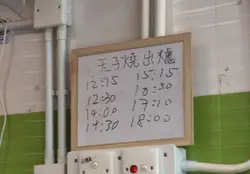 玉子燒出爐
12:15 15:15
12:30 16:30
14:00 17:10
14:30 18:00